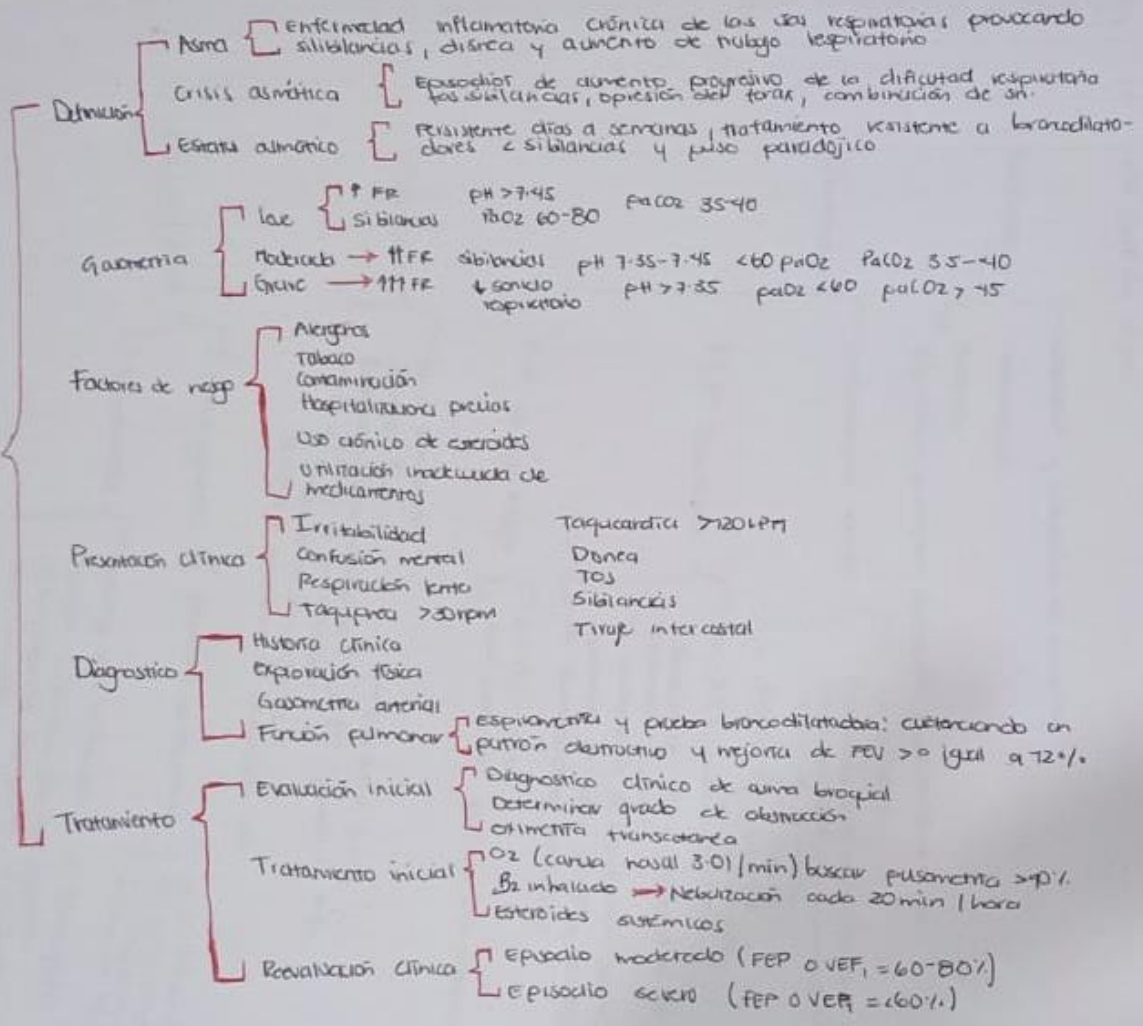 Definición
Asma
Enfermedad inflamatoria crónica de las vías respiratorias provocando
silibilancias, disnea y aumento de trabajo respiratorio
Crisis asmática
Episodios de aumento progresivo de la dificutad respiratoria
tos, sibilancias, opresión del torax, combinación de sn.
Estatus asmatico
Persistente días a semanas, tratamiento resistente a broncodilato-
dores c sibilancias y pulso paradojico
Gasometria
leve
↑ FR pH >7.45 PaCO2 35-40
Sibilancias PaO2 60-80
Moderado → ↑↑FR sibilancias pH 7.35-7.45 <60 paO2 PaCO2 35-40
Grave → ↑↑↑ FR ↓ sonido pH >7.35 paO2 <60 paCO2 > 45
respiratorio
Factores de riesgo
Alergenos
Tabaco
Contaminación
Hospitalizaciones previas
Uso crónico de esteroides
Utilización inadecuada de
medicamentos
Presentación clínica
Irritabilidad
Confusión mental
Respiración lenta
Taquipnea >30rpm
Taquicardia >120 LPM
Disnea
Tos
Sibilancias
Tiraje intercostal
Diagnostico
Historia clínica
Exploración física
Gasometria arterial
Función pulmonar
Espirometria y prueba broncodilatadora: evidenciando un
patrón obstructivo y mejoria de FEV > o igual a 12%.
Tratamiento
Evaluación inicial
Diagnostico clínico de asma broquial
Determinar grado de obstrucción
Oximetria transcutanea
Tratamiento inicial
O2 (canula nasal 3.0 l/min) buscar pulsometria >90%
B2 inhalado → Nebulización cada 20 min / hora
Esteroides sistémicos
Reevaluación clínica
Episodio moderado (FEP o VEF1 = 60-80%)
Episodio severo (FEP o VEF1 = <60%)